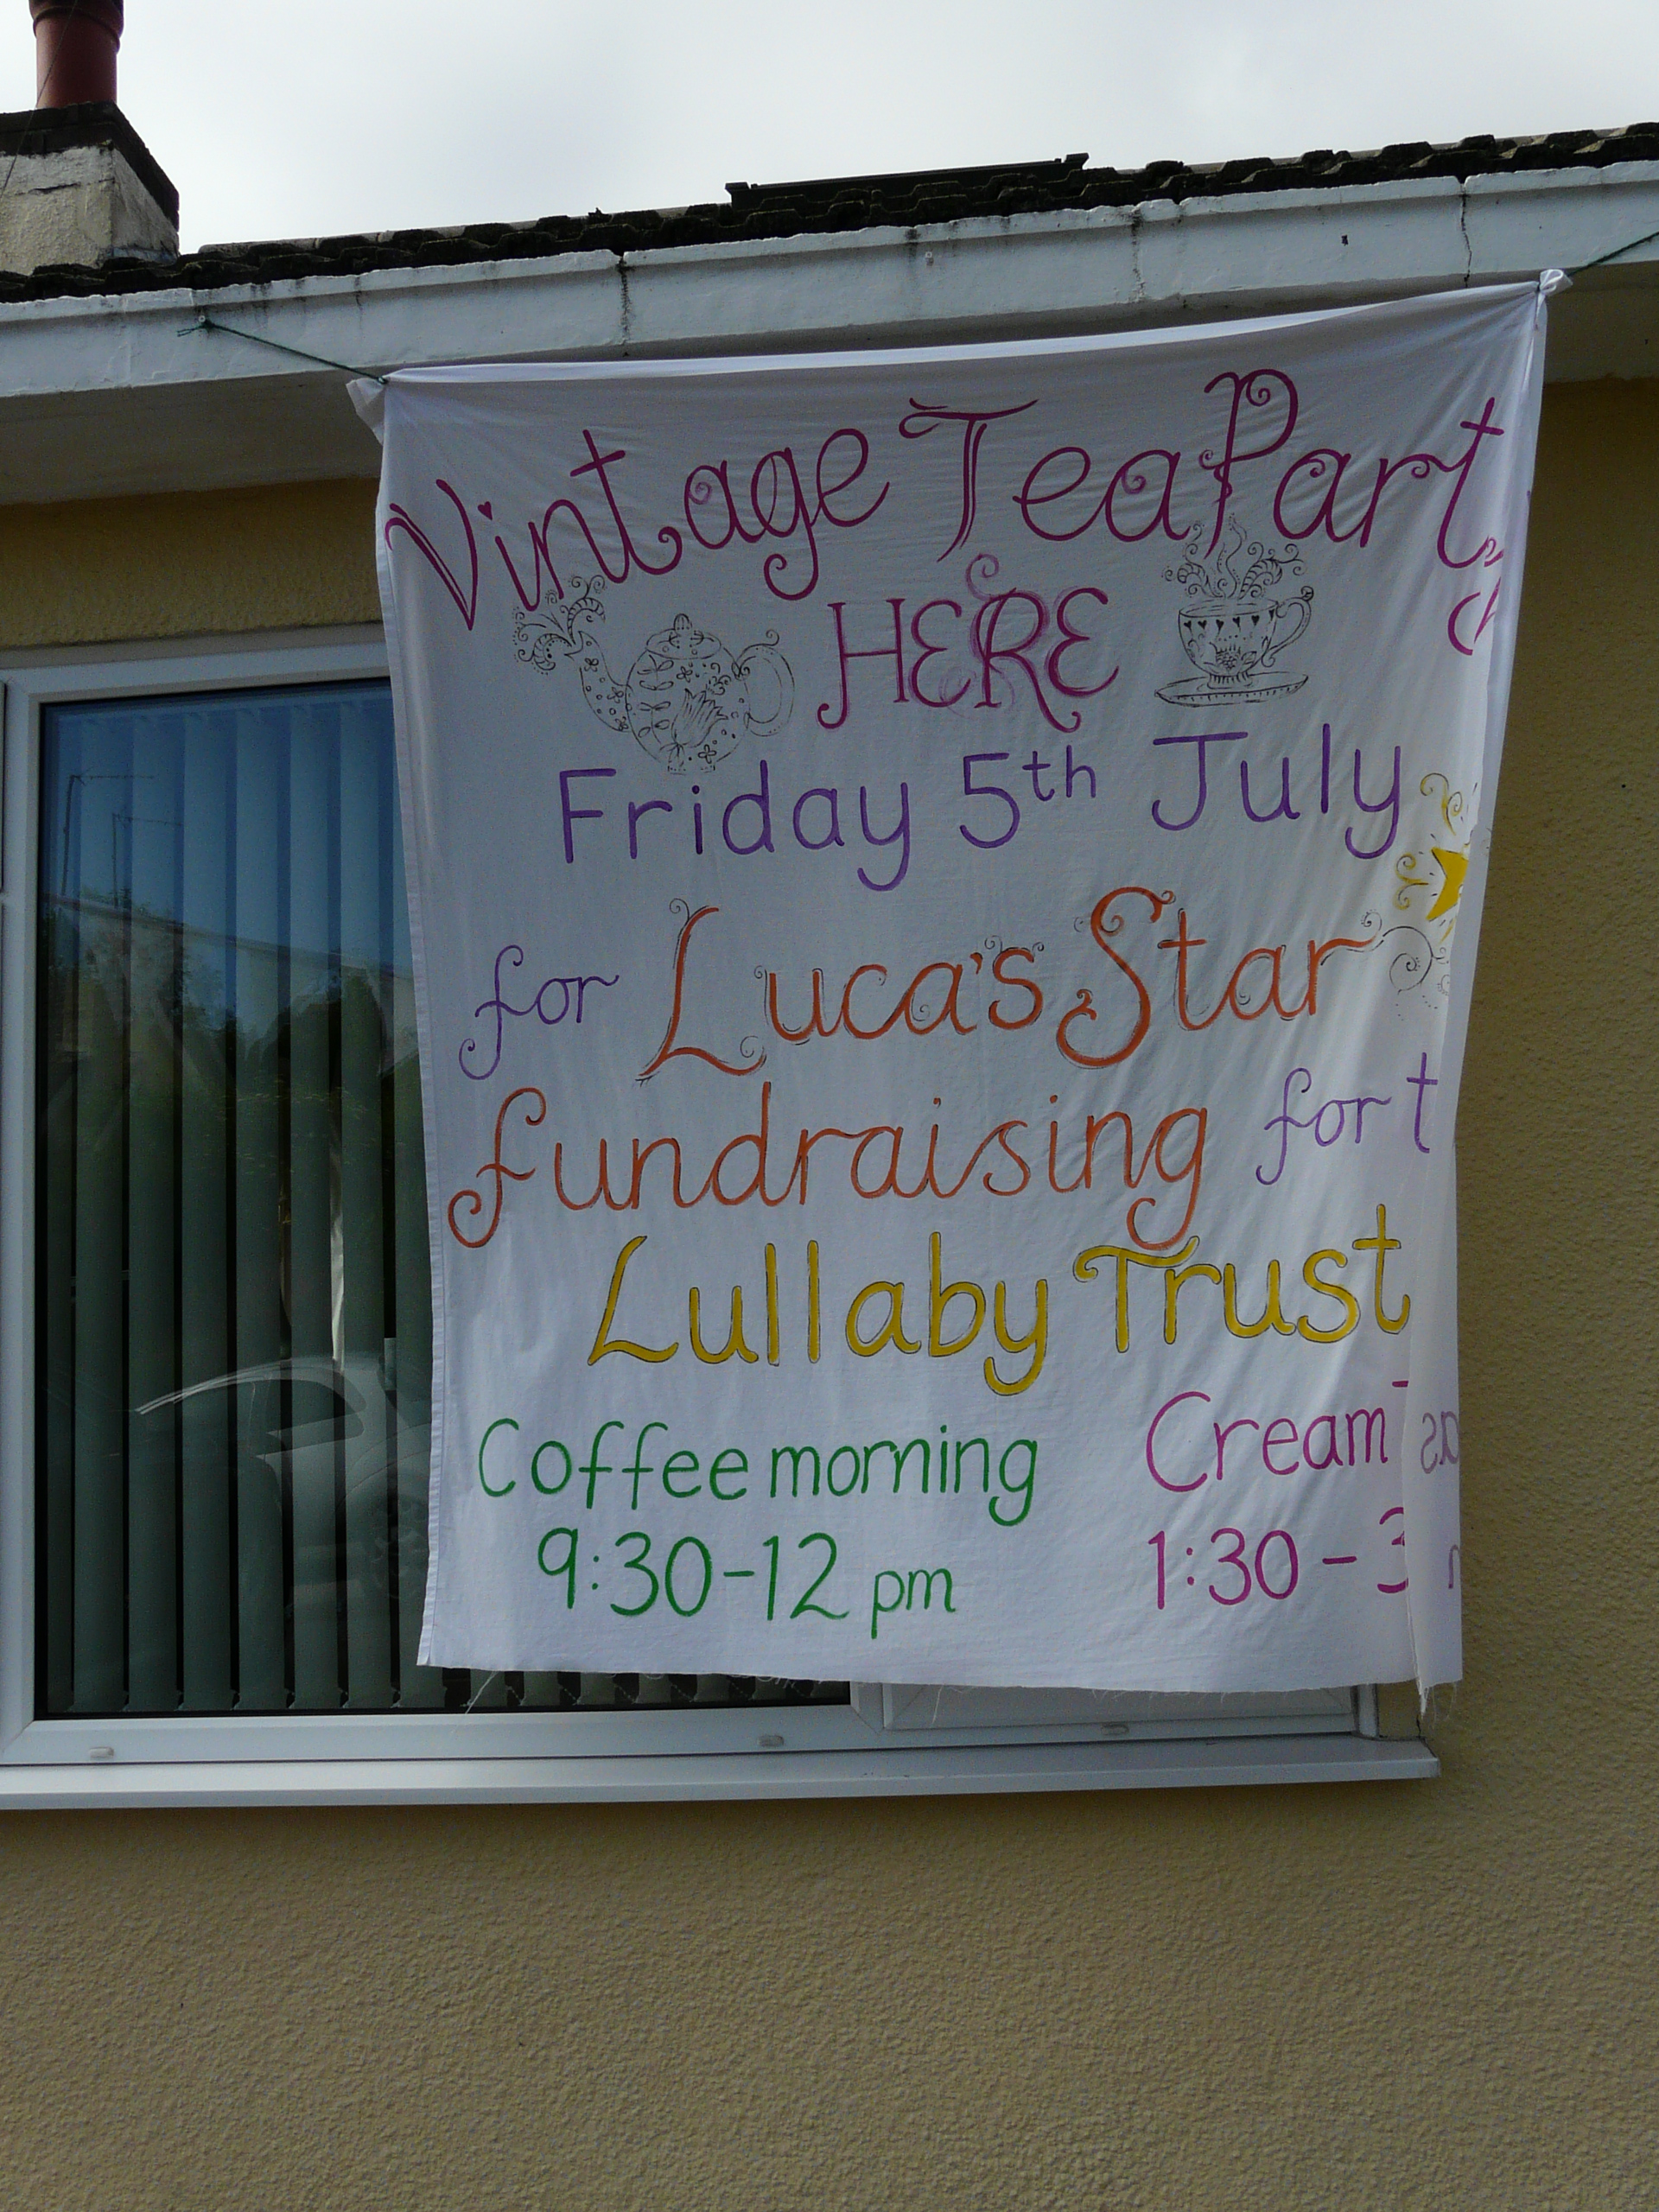 Vintage Tea Part
HERE
Friday 5th July
for Luca's Star
fundraising for t
Lullaby Trust
Coffee morning Cream
9:30-12 pm 1:30-3